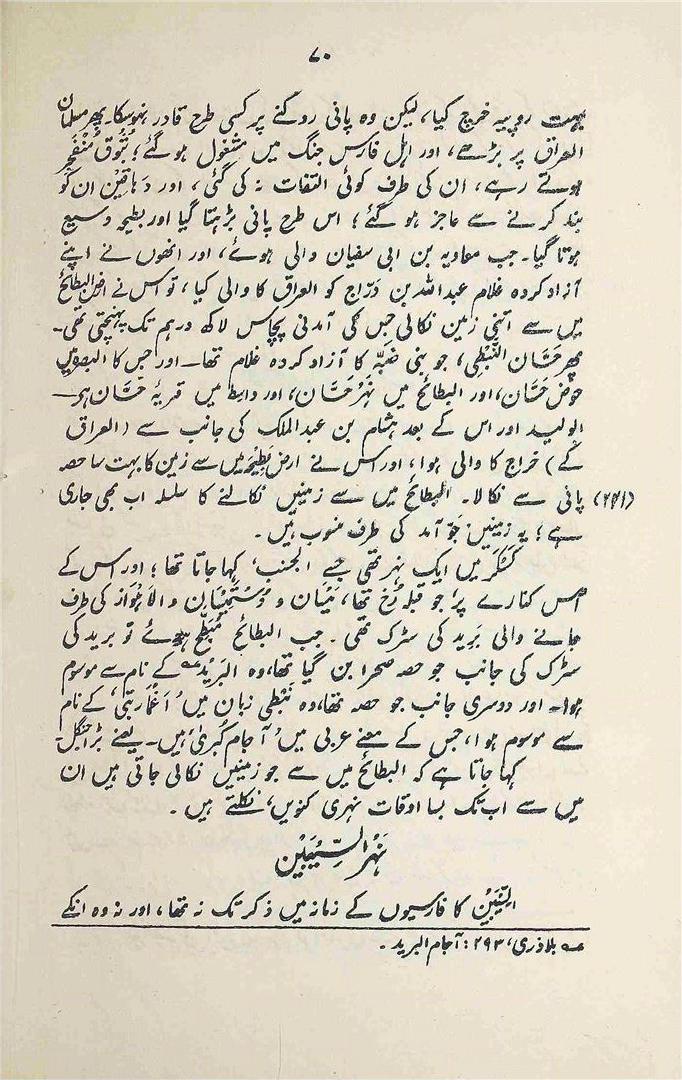 ۷۰
بہت روپیہ خرچ کیا، لیکن وہ پانی روکنے پر کسی طرح قادر نہوسکا۔ پھر مسلمان
العراق پر بڑھے، اور اہل فارس جنگ میں مشغول ہوگئے؛ بُثُوق مُنْفَجِر
ہوتے رہے، ان کی طرف کوئی التفات نہ کی گئی، اور دَہاقین ان کو
بند کرنے سے عاجز ہو گئے؛ اس طرح پانی بڑھتا گیا اور بطیحہ وسیع
ہوتا گیا۔ جب معاویہ بن ابی سفیان والی ہوئے، اور انھوں نے اپنے
آزاد کردہ غلام عبداللہ بن دَرّاج کو العراق کا والی کیا، تو اس نے ارض البطائح
میں سے اتنی زمین نکالی جس کی آمدنی پچاس لاکھ درہم تک پہنچتی تھی۔
پھر حَسّان النَّبْطِی، جو بنی ضَبّہ کا آزاد کردہ غلام تھا۔ اور جس کا البصرہ میں
حوض حَسّان، اور البطائح میں نہر حَسّان، اور واسط میں قریۂ حَسّان ہے۔
الولید اور اس کے بعد ہشام بن عبدالملک کی جانب سے (العراق
کے) خراج کا والی ہوا، اور اس نے ارض بطیحہ میں سے زمین کا بہت سا حصہ
(۲۴۱) پانی سے نکالا۔ البطائح میں سے زمینیں نکالنے کا سلسلہ اب بھی جاری
ہے؛ یہ زمینیں جَوآمد کی طرف منسوب ہیں۔
کَسْکَر میں ایک نہر تھی جسے الجنب، کہا جاتا تھا؛ اور اس کے
اس کنارے پر، جو قبلہ رخ تھا، مَیْسان و دَسْتُمِیْسان و الاَہواز کی طرف
جانے والی بَرِید کی سڑک تھی۔ جب البطائح مُبَطَّح ہوئے تو برید کی
سڑک کی جانب جو حصہ صحرا بن گیا تھا، وہ البَرِید؃ کے نام سے موسوم
ہوا۔ اور دوسری جانب جو حصہ تھا، وہ نَبَطی زبان میں 'اَغْمَرَبَثی' کے نام
سے موسوم ہوا، جس کے معنے عربی میں 'آجام کُبریٰ' ہیں۔ یعنے بڑا جنگل۔
کہا جاتا ہے کہ البطائح میں سے جو زمینیں نکالی جاتی ہیں ان
میں سے اب تک بسا اوقات نہری کنویں، نکلتے ہیں۔
نہر السِّیْبَیْن
السِّیْبَیْن کا فارسیوں کے زمانہ میں ذکر تک نہ تھا، اور نہ وہ انکے
؃ بلاذری، ۲۹۳: آجام البرید۔